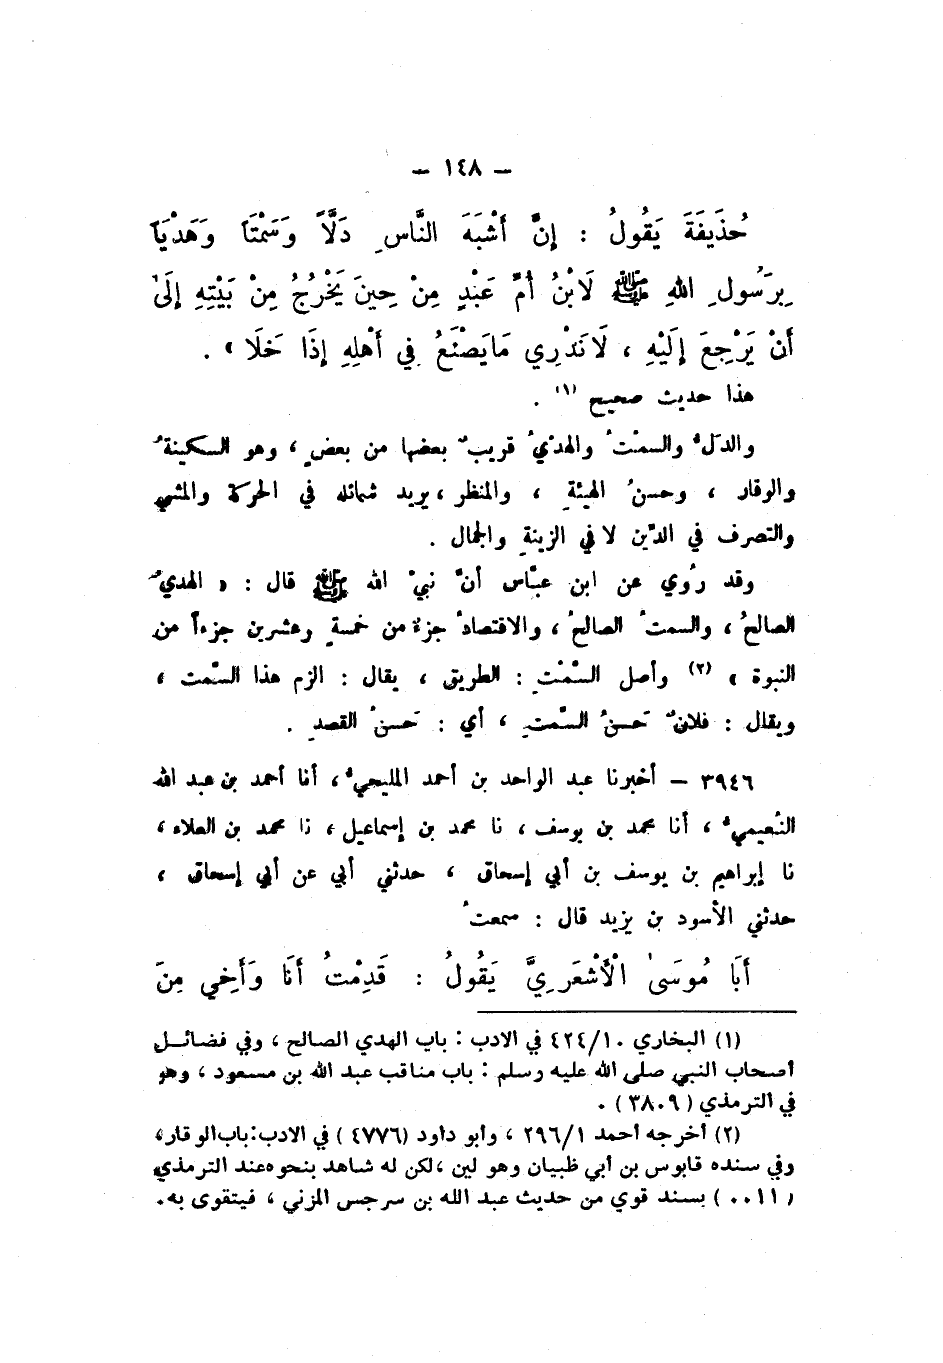 – ١٤٨ –
حُذَيفَةَ يَقُولُ : إِنَّ أَشْبَهَ النَّاسِ دَلًّا وَسَمْتًا وَهَدْيًا
بِرَسُولِ اللهِ ﷺ لَابْنُ أُمِّ عَبْدٍ مِنْ حِينَ يَخْرُجُ مِنْ بَيْتِهِ إِلَىٰ
أَنْ يَرْجِعَ إِلَيْهِ ، لَانَدْرِي مَايَصْنَعُ فِي أَهْلِهِ إِذَا خَلَا » .
هذا حديث صحيح (١) .
والدلُّ والسمْتُ والهدْيُ قريبٌ بعضها من بعضٍ ، وهو السكينةُ
والوقار ، وحسنُ الهيئةِ ، والمنظر ، يريد شمائله في الحركة والمشي
والتصرف في الدِّين لا في الزينةِ والجمال .
وقد رُوي عن ابن عبَّاس أنَّ نبيَّ الله ﷺ قال : « الهديُ
الصالحُ ، والسمتُ الصالحُ ، والاقتصادُ جزءٌ من خمسةٍ وعشرين جزءاً من
النبوة » (٢) وأصل السَّمْتِ : الطريق ، يقال : الزم هذا السَّمت ،
ويقال : فلانٌ حَسنُ السَّمتِ ، أي : حَسنُ القصدِ .
٣٩٤٦ – أخبرنا عبد الواحد بن أحمد المليحيُّ ، أنا أحمد بن عبد الله
النُعيميُّ ، أنا محمد بن يوسف ، نا محمد بن إسماعيل ، نا محمد بن العلاء ،
نا إبراهيم بن يوسف بن أبي إسحاق ، حدثني أبي عن أبي إسحاق ،
حدثني الأسود بن يزيد قال : سمعتُ
أَبَا مُوسَىٰ الْأَشْعَرِيَّ يَقُولُ : قَدِمْتُ أَنَا وَأَخِي مِنَ
(١) البخاري ٤٢٤/١٠ في الادب : باب الهدي الصالح ، وفي فضائل
أصحاب النبي صلى الله عليه وسلم : باب مناقب عبد الله بن مسعود ، وهو
في الترمذي (٣٨٠٩) .
(٢) أخرجه أحمد ٢٩٦/١ ، وأبو داود (٤٧٧٦) في الادب:باب الوقار،
وفي سنده قابوس بن أبي ظبيان وهو لين ،لكن له شاهد بنحوه عند الترمذي
(٢٠١١) بسند قوي من حديث عبد الله بن سرجس المزني ، فيتقوى به.